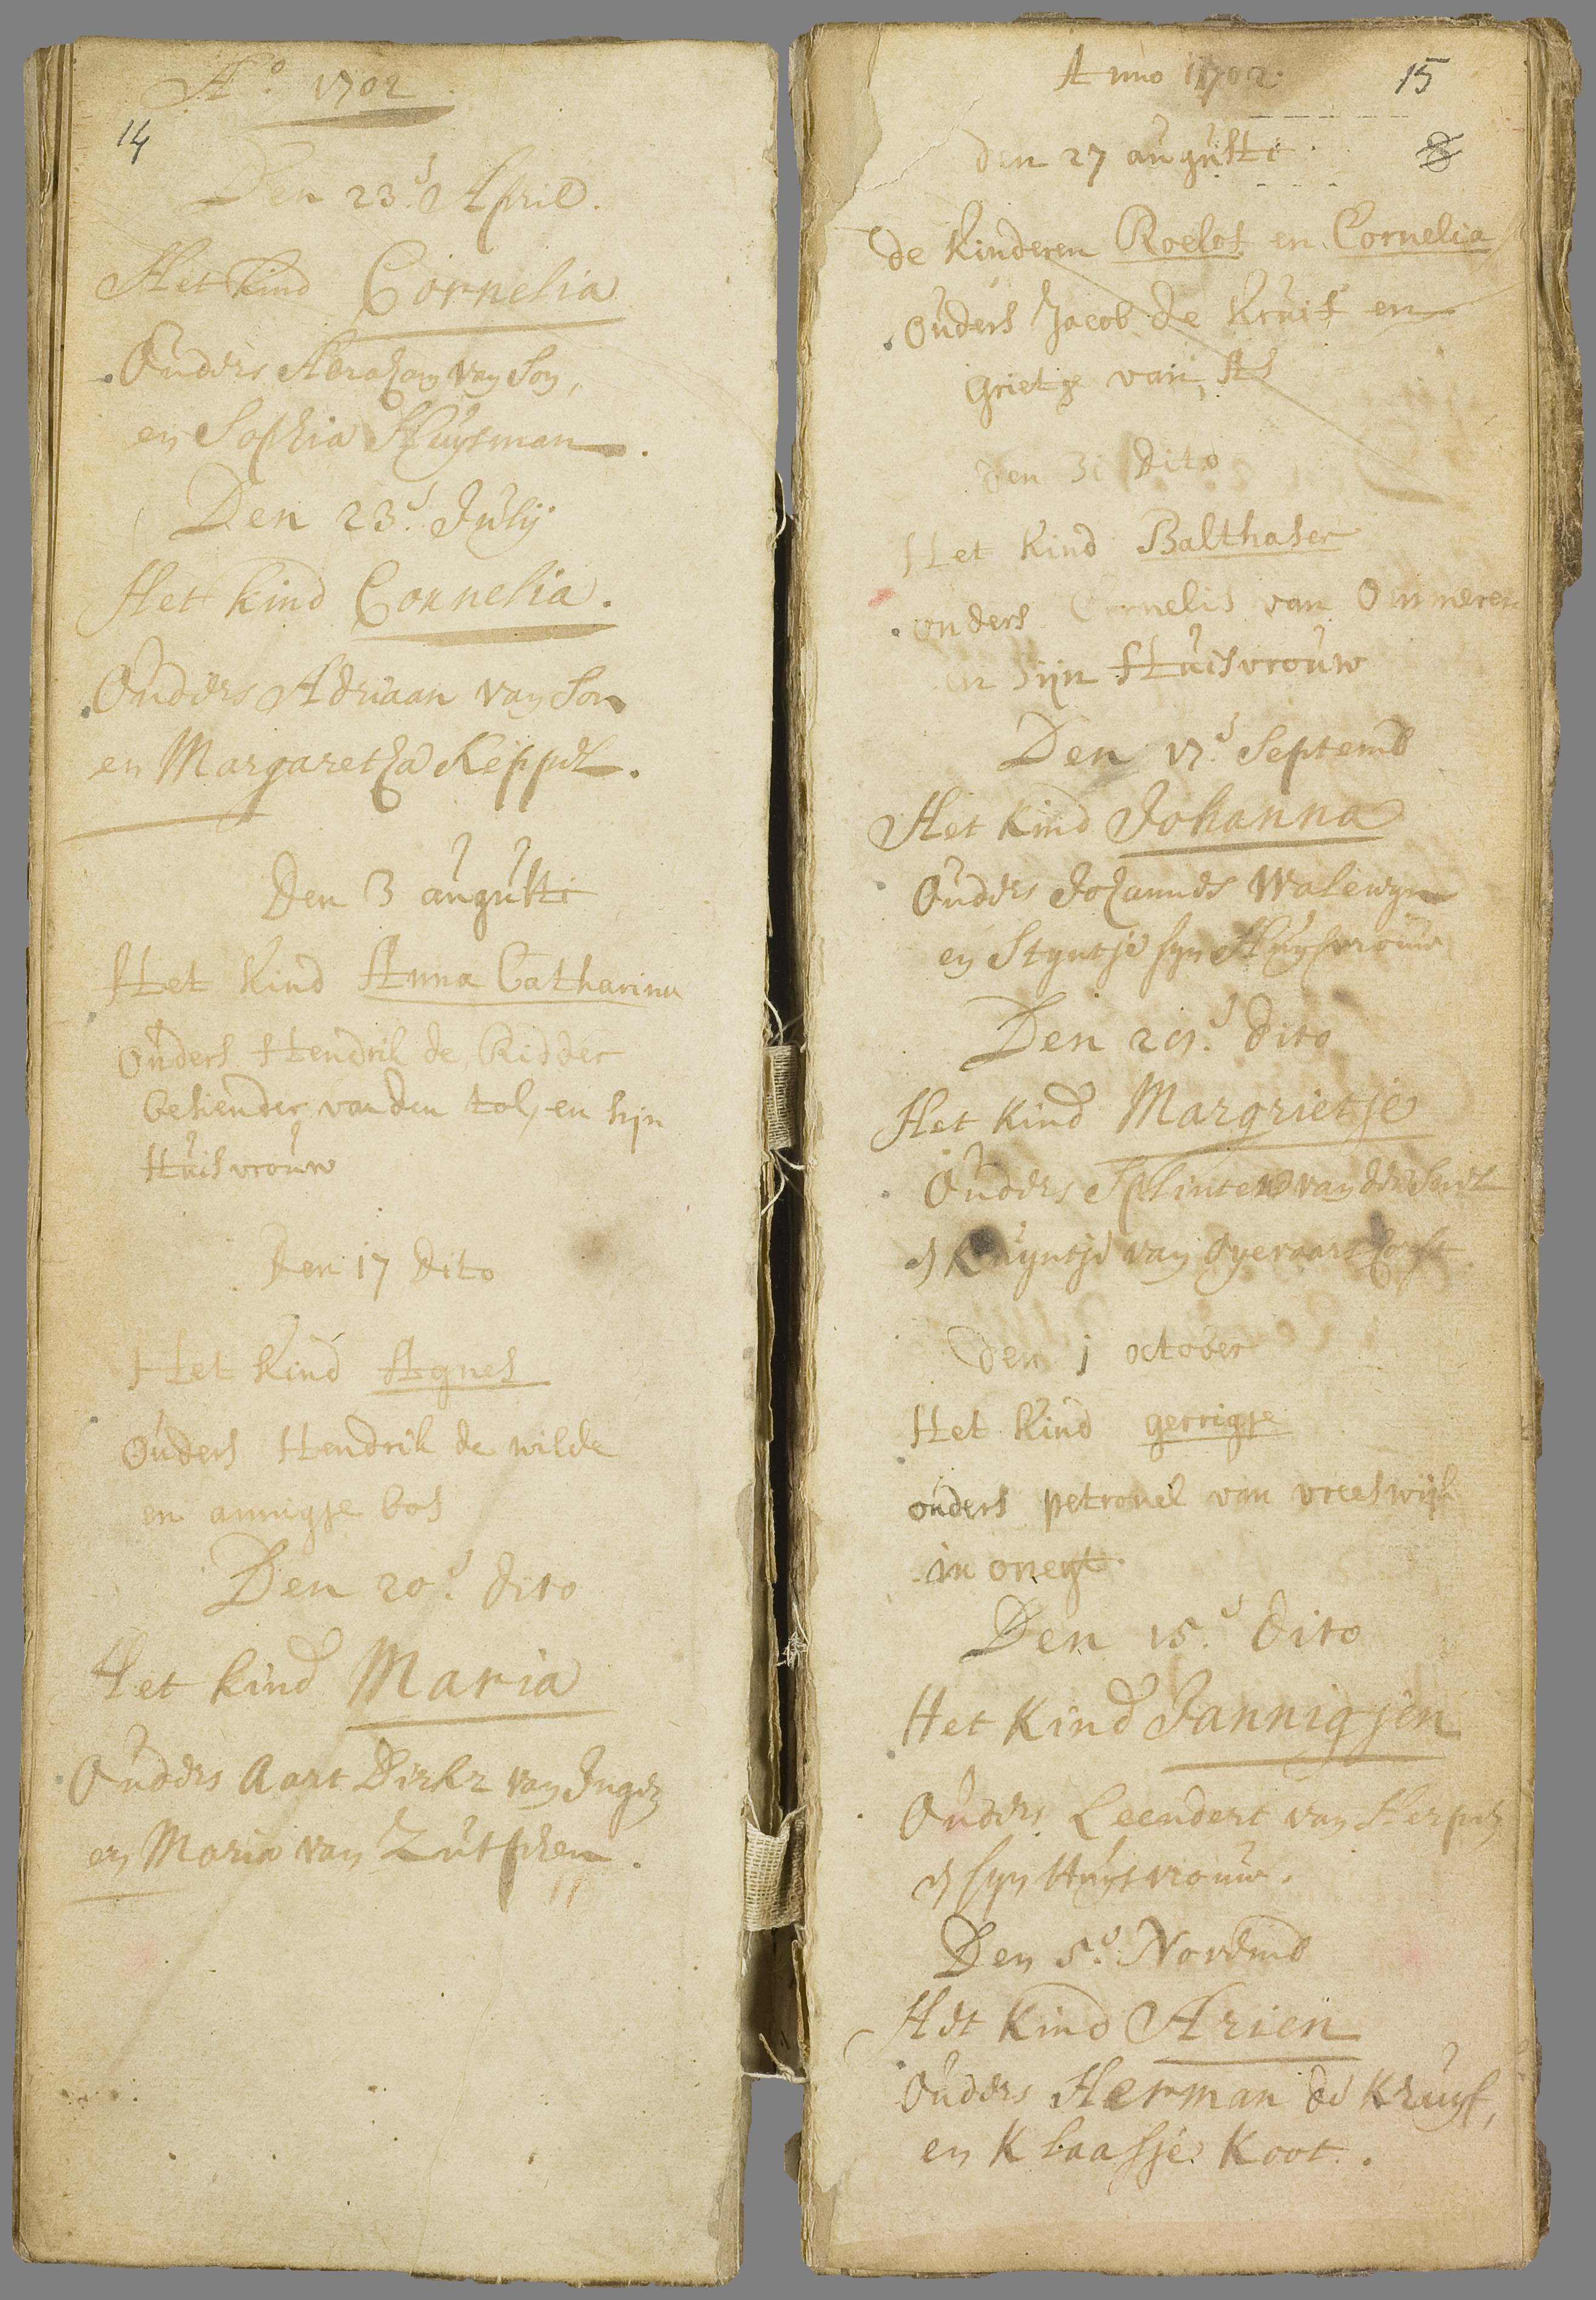 Aº. 1702.
14
Den 23.e April.
Het kind Cornelia
Ouders Abraham van Son,
en Sophia Huysman.
Den 23.e Julij
Het kind Cornelia.
Ouders Adriaan van Son
en Margaretha Keppel.
Den 3 augusti
Het kind Anna Catharina
Ouders Hendrik de Ridder
besiender van den tol, en sijn
Huisvrouw
Den 17 dito
Het kind Agnes
Ouders Hendrik de wilde
en annigje bos
Den 20.e dito
Het kind Maria
Ouders Aart Dirkz van Ingen
en Maria van Zutphen.
Anno 1702.
15
den 27 augusti.
8
de kinderen Roelof en Cornelia
Ouders Jacob de kruif en
Grietje van As
den 31 dito
Het kind Balthaser
Ouders Cornelis van Ommeren
en sijn Huisvrouw
Den 17.e Septemb
Het kind Johanna
Ouders Johannes Walewyn
en Styntje syn Huysvrouw
Den dito
Het kind Margrietje
Ouders Splinter van der
en van Overaars
den 1 october
Het kind gerrigje
ouders petronel van vreeswijk
in onegt.
Den 15.e dito
Het kind Jannigjen
Ouders Leendert van Herpen
en syn Huysvrouw.
Den 5.e Novemb
Het kind Arien
Ouders Herman de Kruyf,
en Klaasje Koot.